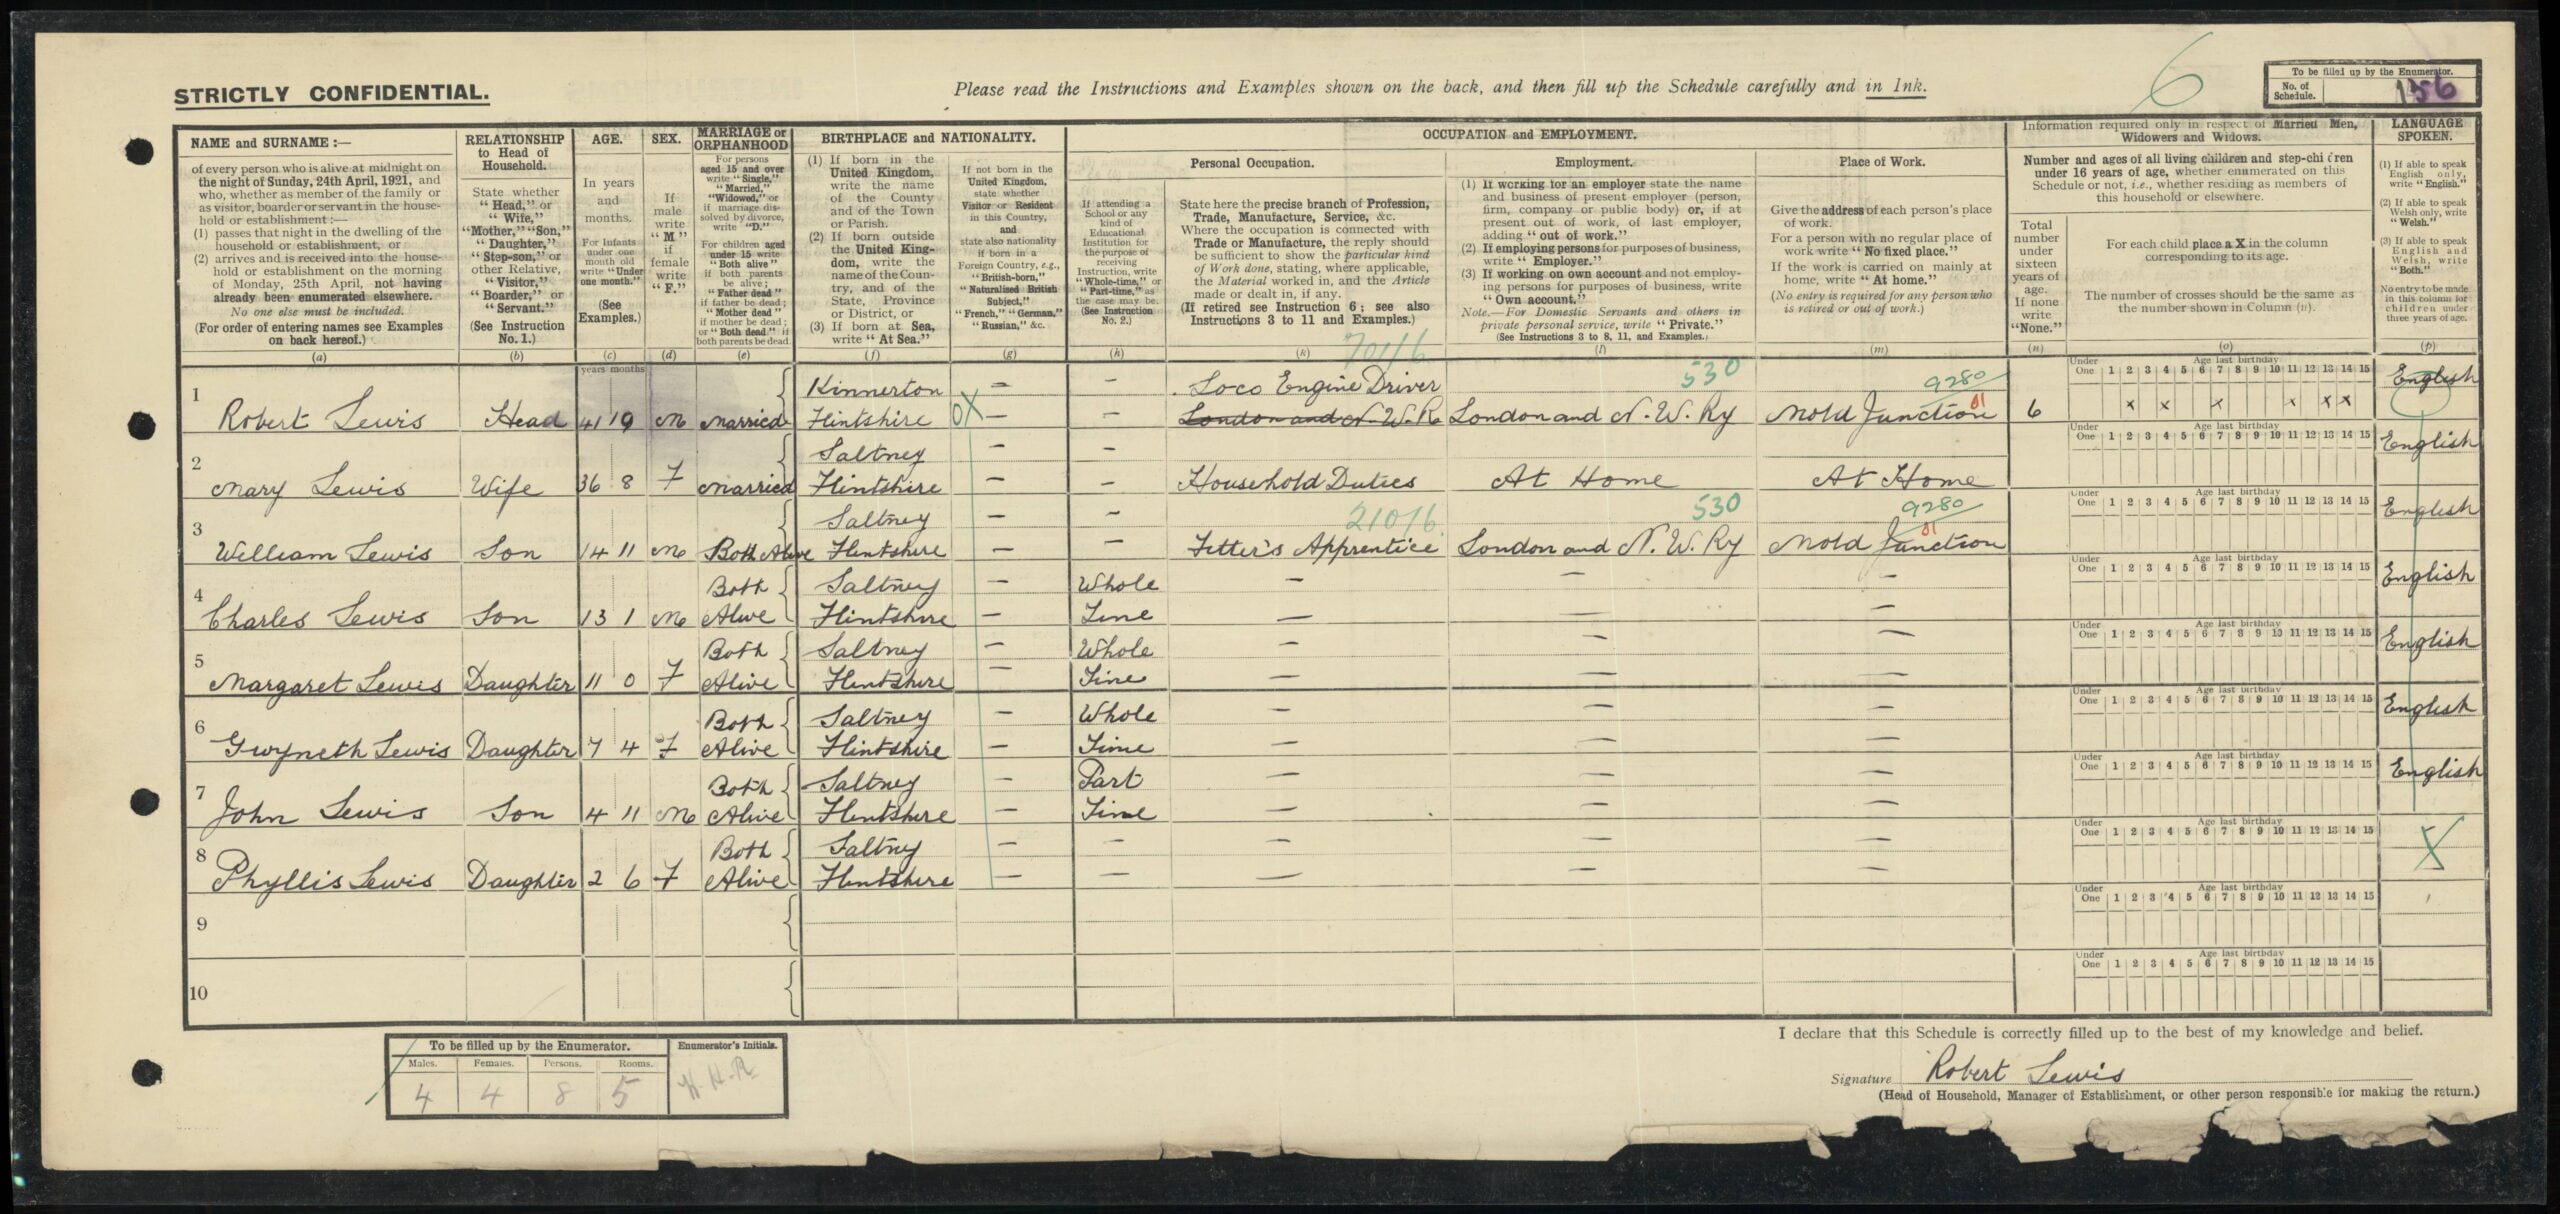 STRICTLY CONFIDENTIAL.
Please read the Instructions and Examples shown on the back, and then fill up the Schedule carefully and in Ink.
6
To be filled up by the Enumerator.
No. of Schedule. 136
NAME and SURNAME :—
of every person who is alive at midnight on
the night of Sunday, 24th April, 1921, and
who, whether as member of the family or
as visitor, boarder or servant in the house-
hold or establishment :—
(1) passes that night in the dwelling of the
household or establishment, or
(2) arrives and is received into the house-
hold or establishment on the morning
of Monday, 25th April, not having
already been enumerated elsewhere.
No one else must be included.
(For order of entering names see Examples
on back hereof.)
(a)
RELATIONSHIP
to Head of
Household.
State whether
"Head," or
"Wife,"
"Mother," "Son,"
"Daughter,"
"Step-son," or
other Relative,
"Visitor,"
"Boarder," or
"Servant."
(See Instruction
No. 1.)
(b)
AGE.
In years
and
months.
For Infants
under one
month old
write "Under
one month."
(See
Examples.)
(c)
SEX.
If
male
write
"M"
if
female
write
"F."
(d)
MARRIAGE or
ORPHANHOOD
For persons
aged 15 and over
write "Single,"
"Married,"
"Widowed," or
if marriage dis-
solved by divorce,
write "D."
For children aged
under 15 write
"Both alive"
if both parents
be alive;
"Father dead"
if father be dead;
"Mother dead"
if mother be dead;
or "Both dead" if
both parents be dead
(e)
BIRTHPLACE and NATIONALITY.
(1) If born in the
United Kingdom,
write the name
of the County
and of the Town
or Parish.
(2) If born outside
the United King-
dom, write the
name of the Coun-
try, and of the
State, Province
or District, or
(3) If born at Sea,
write "At Sea."
(f)
If not born in the
United Kingdom,
state whether
Visitor or Resident
in this Country,
and
state also nationality
if born in a
Foreign Country, e.g.,
"British-born,"
"Naturalised British
Subject,"
"French," "German,"
"Russian," &c.
(g)
OCCUPATION and EMPLOYMENT.
Personal Occupation.
If attending a
School or any
kind of
Educational
Institution for
the purpose of
receiving
Instruction, write
"Whole-time," or
"Part-time," as
the case may be.
(See Instruction
No. 2.)
(h)
State here the precise branch of Profession,
Trade, Manufacture, Service, &c.
Where the occupation is connected with
Trade or Manufacture, the reply should
be sufficient to show the particular kind
of Work done, stating, where applicable,
the Material worked in, and the Article
made or dealt in, if any.
(If retired see Instruction 6; see also
Instructions 3 to 11 and Examples.)
(k)
Employment.
(1) If working for an employer state the name
and business of present employer (person,
firm, company or public body) or, if at
present out of work, of last employer,
adding "out of work."
(2) If employing persons for purposes of business,
write "Employer."
(3) If working on own account and not employ-
ing persons for purposes of business, write
"Own account."
Note.—For Domestic Servants and others in
private personal service, write "Private."
(See Instructions 3 to 8, 11, and Examples.)
(l)
Place of Work.
Give the address of each person's place
of work.
For a person with no regular place of
work write "No fixed place."
If the work is carried on mainly at
home, write "At home."
(No entry is required for any person who
is retired or out of work.)
(m)
Information required only in respect of Married Men,
Widowers and Widows.
Number and ages of all living children and step-children
under 16 years of age, whether enumerated on this
Schedule or not, i.e., whether residing as members of
this household or elsewhere.
Total
number
under
sixteen
years of
age.
If none
write
"None."
(n)
For each child place a X in the column
corresponding to its age.
The number of crosses should be the same as
the number shown in Column (n).
(o)
LANGUAGE
SPOKEN.
(1) If able to speak
English only,
write "English."
(2) If able to speak
Welsh only, write
"Welsh."
(3) If able to speak
English and
Welsh, write
"Both."
No entry to be made
in this column for
children under
three years of age.
(p)
years months
701/6 530 9280
Kinnerton — — Loco Engine Driver English
Under One 1 2 3 4 5 6 7 8 9 10 11 12 13 14 15 Age last birthday
1 Robert Lewis Head 41 9 M Married Flintshire OX — — London and N.W.R London and N.W.Ry Mold Junction 01 6 x x x x x x
Saltney — —
Under One 1 2 3 4 5 6 7 8 9 10 11 12 13 14 15 Age last birthday English
2 Mary Lewis Wife 36 8 F Married Flintshire — — Household Duties At Home At Home
Saltney — — 210/6 530 9280
Under One 1 2 3 4 5 6 7 8 9 10 11 12 13 14 15 Age last birthday English
3 William Lewis Son 14 11 M Both Alive Flintshire — — Fitter's Apprentice London and N.W.Ry Mold Junction 01
Both Saltney — Whole — — —
Under One 1 2 3 4 5 6 7 8 9 10 11 12 13 14 15 Age last birthday English
4 Charles Lewis Son 13 1 M Alive Flintshire — Time — — —
Both Saltney — Whole — — —
Under One 1 2 3 4 5 6 7 8 9 10 11 12 13 14 15 Age last birthday English
5 Margaret Lewis Daughter 11 0 F Alive Flintshire — Time — — —
Both Saltney — Whole — — —
Under One 1 2 3 4 5 6 7 8 9 10 11 12 13 14 15 Age last birthday English
6 Gwyneth Lewis Daughter 7 4 F Alive Flintshire — Time — — —
Both Saltney — Part — — —
Under One 1 2 3 4 5 6 7 8 9 10 11 12 13 14 15 Age last birthday English
7 John Lewis Son 4 11 M Alive Flintshire — Time — — —
Both Saltney — — — — —
Under One 1 2 3 4 5 6 7 8 9 10 11 12 13 14 15 Age last birthday X
8 Phyllis Lewis Daughter 2 6 F Alive Flintshire — — — — —
Under One 1 2 3 4 5 6 7 8 9 10 11 12 13 14 15 Age last birthday
9
Under One 1 2 3 4 5 6 7 8 9 10 11 12 13 14 15 Age last birthday
10
To be filled up by the Enumerator.
Males. Females. Persons. Rooms.
4 4 8 5
Enumerator's Initials.
H.H.R.
I declare that this Schedule is correctly filled up to the best of my knowledge and belief.
Signature Robert Lewis
(Head of Household, Manager of Establishment, or other person responsible for making the return.)